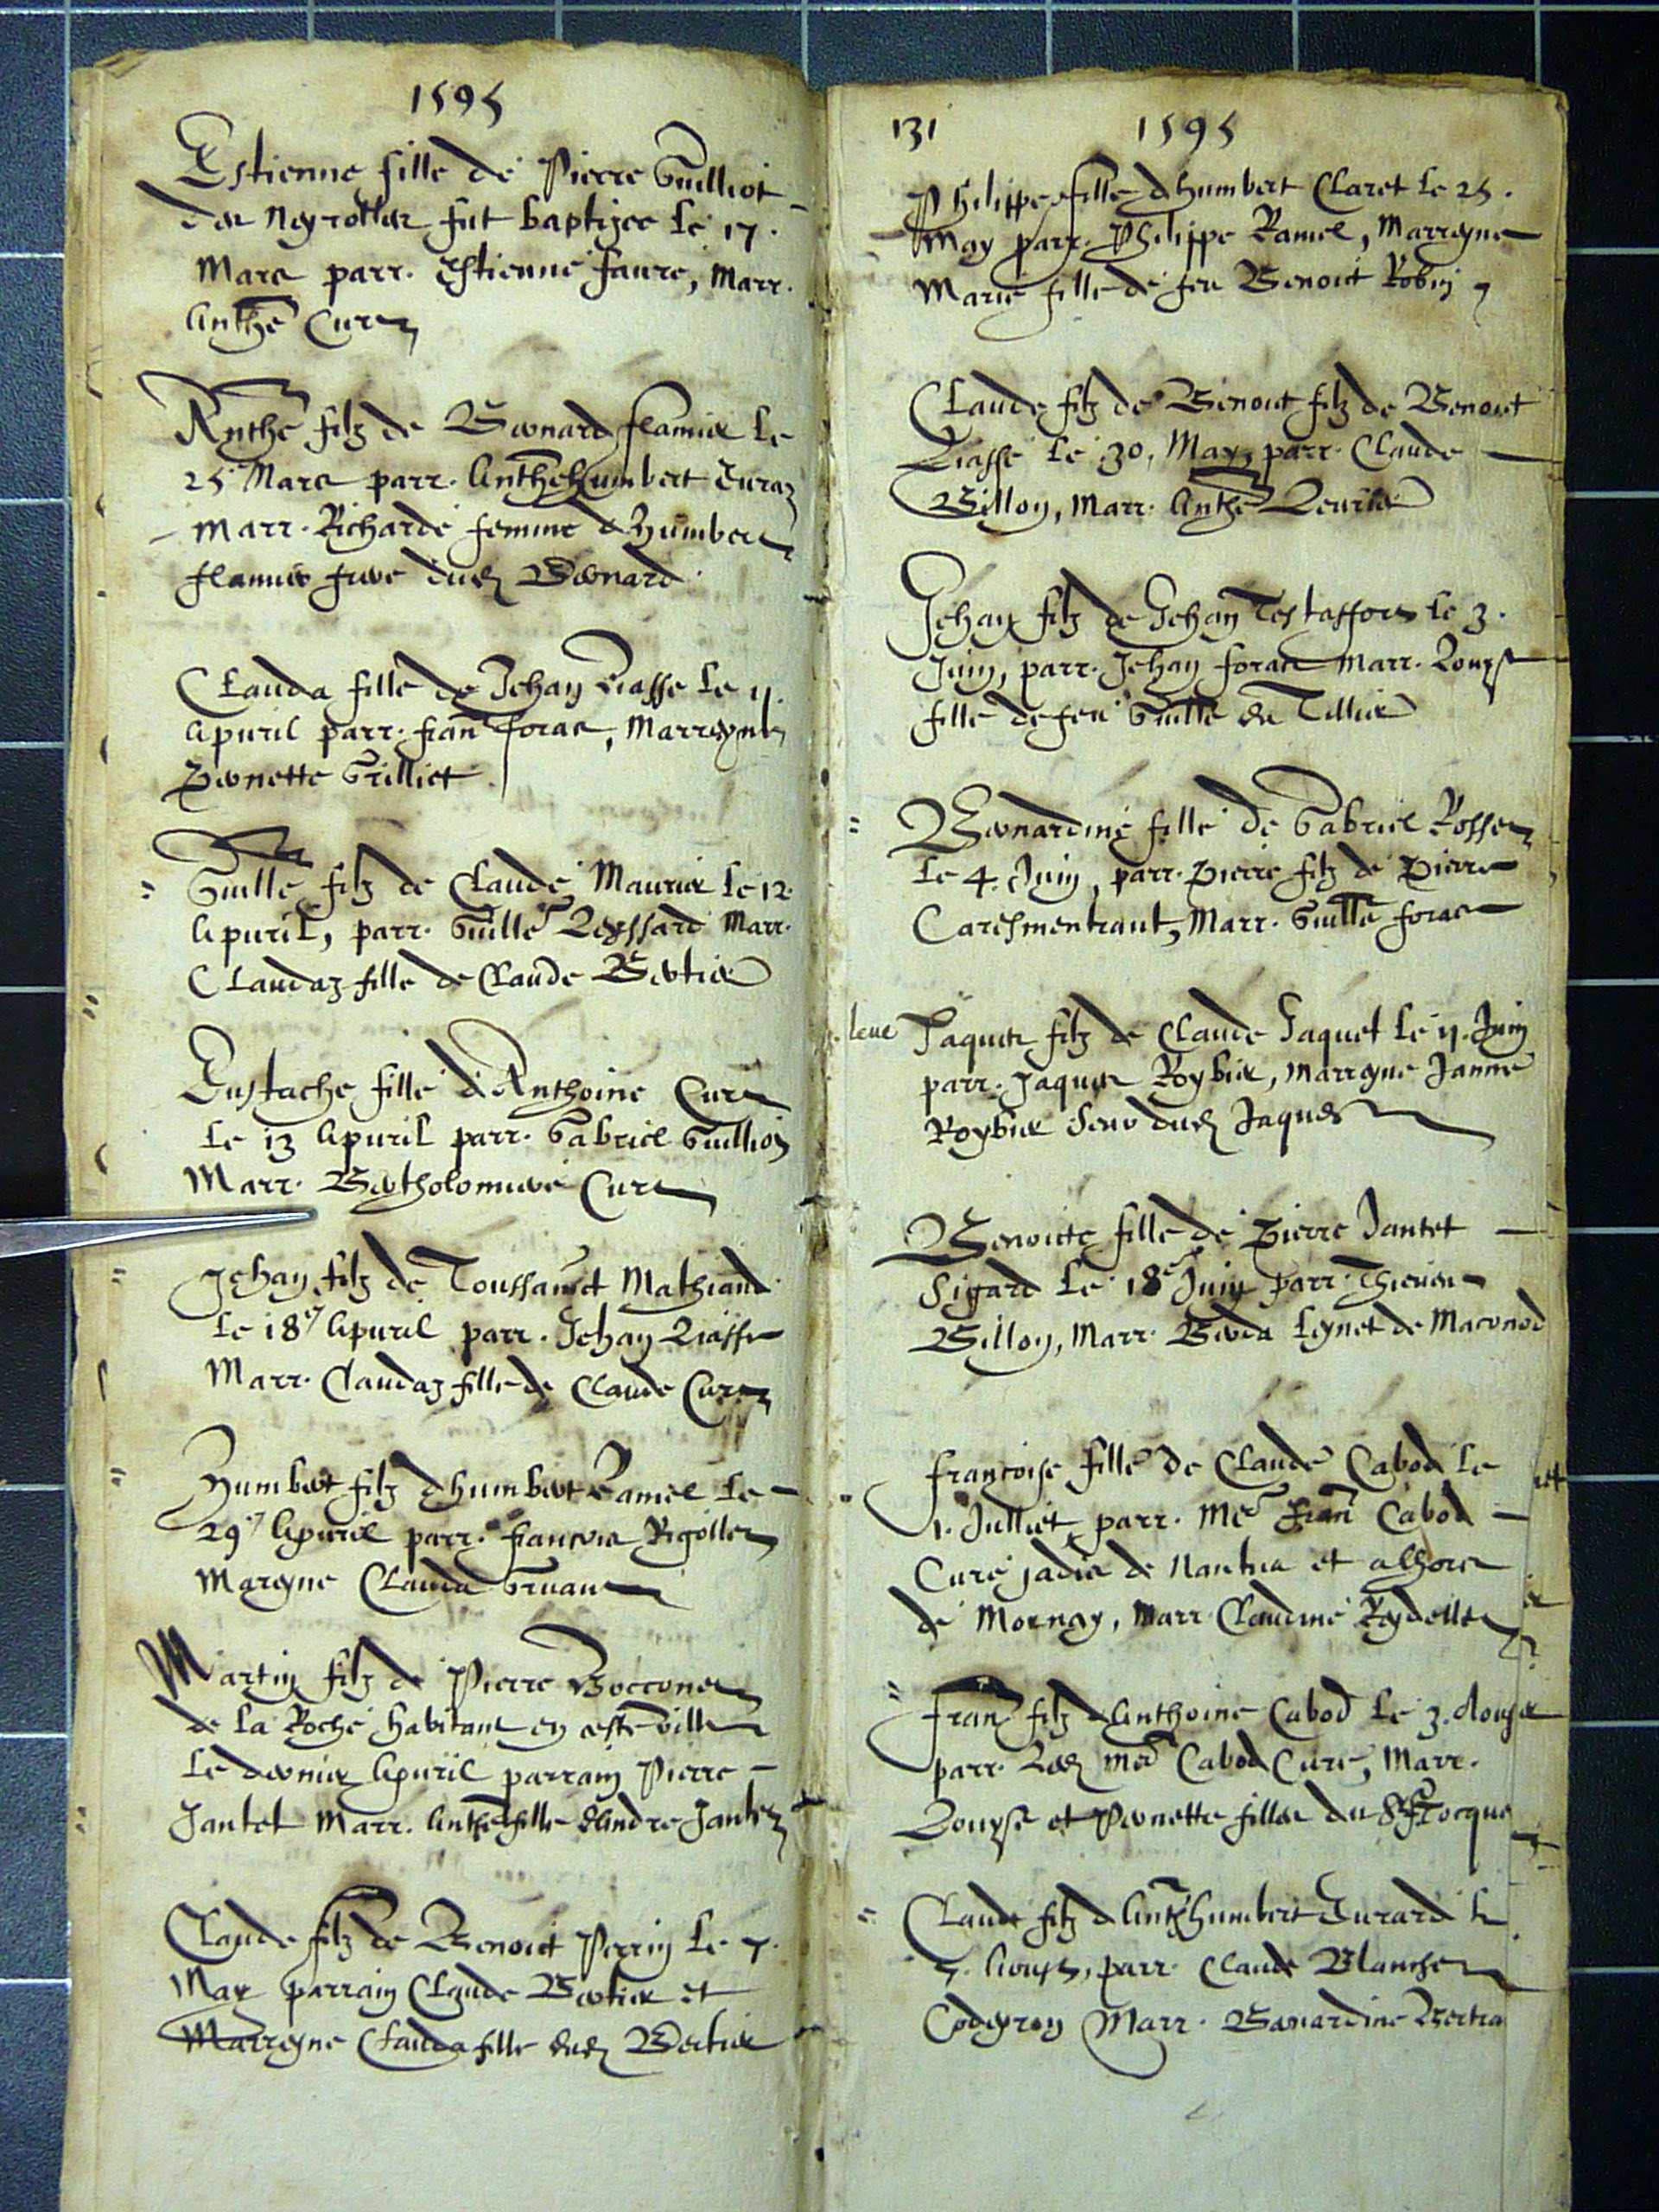 1595
Estienne fille de Pierre Guilliot
des Neyrolles fut baptizee le 17.
Mars parr. Estienne Faure, Marr.
Anthe Curt
Anthe filz de Bernard Flamier le
25 Mars parr. Anthe humbert Juraz
Marr. Richarde femme d humbert
Flamier frere dud Bernard
Clauda fille de Jehan Liasse le 11.
Apuril parr. Fran Foras, Marreyne
Pernette Grilliet
Guille filz de Claude Maurier le 12
Apuril, parr. Guille Leyssard Marr.
Claudaz fille de Claude Bertier
Eustache fille d Anthoine Curt
le 13 Apuril parr. Gabriel Guilliot
Marr. Bertholomieve Curt
Jehan filz de Toussainct Mathiand
le 18e Apuril parr. Jehan Liasse
Marr. Claudaz fille de Claude Curt
Humbert filz d humbert Ramel le
29e Apuril parr. Francois Rigollet
Mareyne Clauda
Martin filz de Pierre
de la Roche habitant en ceste ville
le dernier Apuril parrain Pierre
Jantet Marr. Anthe fille d Andre Jantet
Claude filz de Benoict Perrin le 7.
May parrain Claude Bertier et
Marreyne Clauda fille dud Bertier
131 1595
Philippe fille d humbert Claret le 25.
May parr. Philippe Ramel, Marreyne
Marie fille de feu Benoict Robin
Claude filz de Benoict filz de Benoict
Liasse le 30, May, parr. Claude
Billon, Marr. Anthe
Jehan filz de Jehan le 3.
Juin, parr. Jehan Foras Marr. Loyse
fille de feu Guille du Tillier
Bernardine fille de Gabriel Rosset
le 4. Juin, parr. Pierre filz de Pierre
Caresmentrant, Marr. Guille Foras
Jaques filz de Claude Jaquet le 11. Juin
parr. Jaques Roybier, Marreyne Janne
Roybier seur dud Jaques
Benoicte fille de Pierre Jantet
Sigard le 18e Juin parr. Thieven
Billon, Marr. Berda Leynet de Maconod
Francoise fille de Claude Cabod le
1. Julliet parr. Mre Fran Cabod
Cure jadis de Nantua et alhors
de Mornay, Marr. Claudine Reydellet
Fran filz d Anthoine Cabod le 3. d
parr. Led Mre Cabod Cure, Marr.
Louyse et Pernette filles du Sr
Claude filz d Anthe humbert Jurard le
7. Aoust, parr. Claude Blanchet
Marr. Bernardine